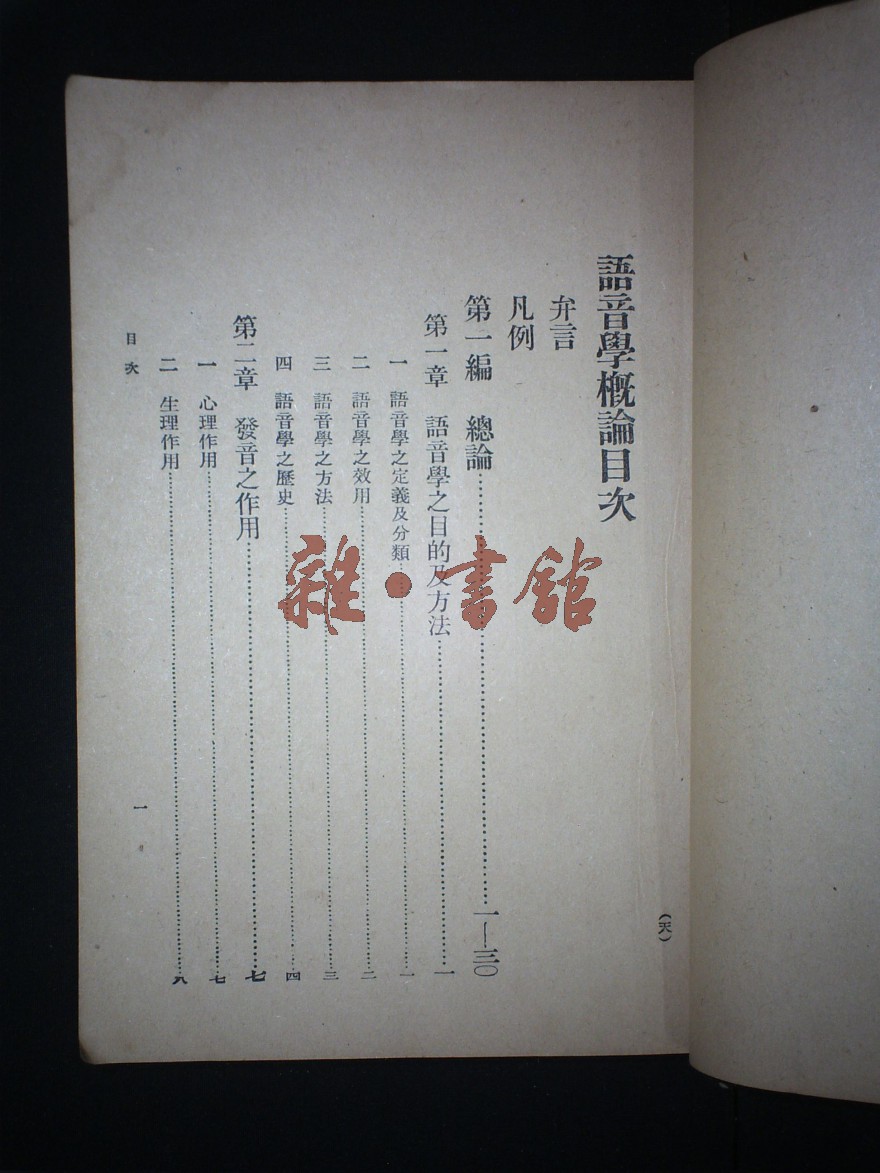 語音學槪論目次
弁言
凡例
第一編 總論……一—三〇
第一章 語音學之目的及方法……一
一 語音學之定義及分類……一
二 語音學之效用……二
三 語音學之方法……三
四 語音學之歷史……四
第二章 發音之作用……七
一 心理作用……七
二 生理作用……八
目次
一
(天)
雜·書館